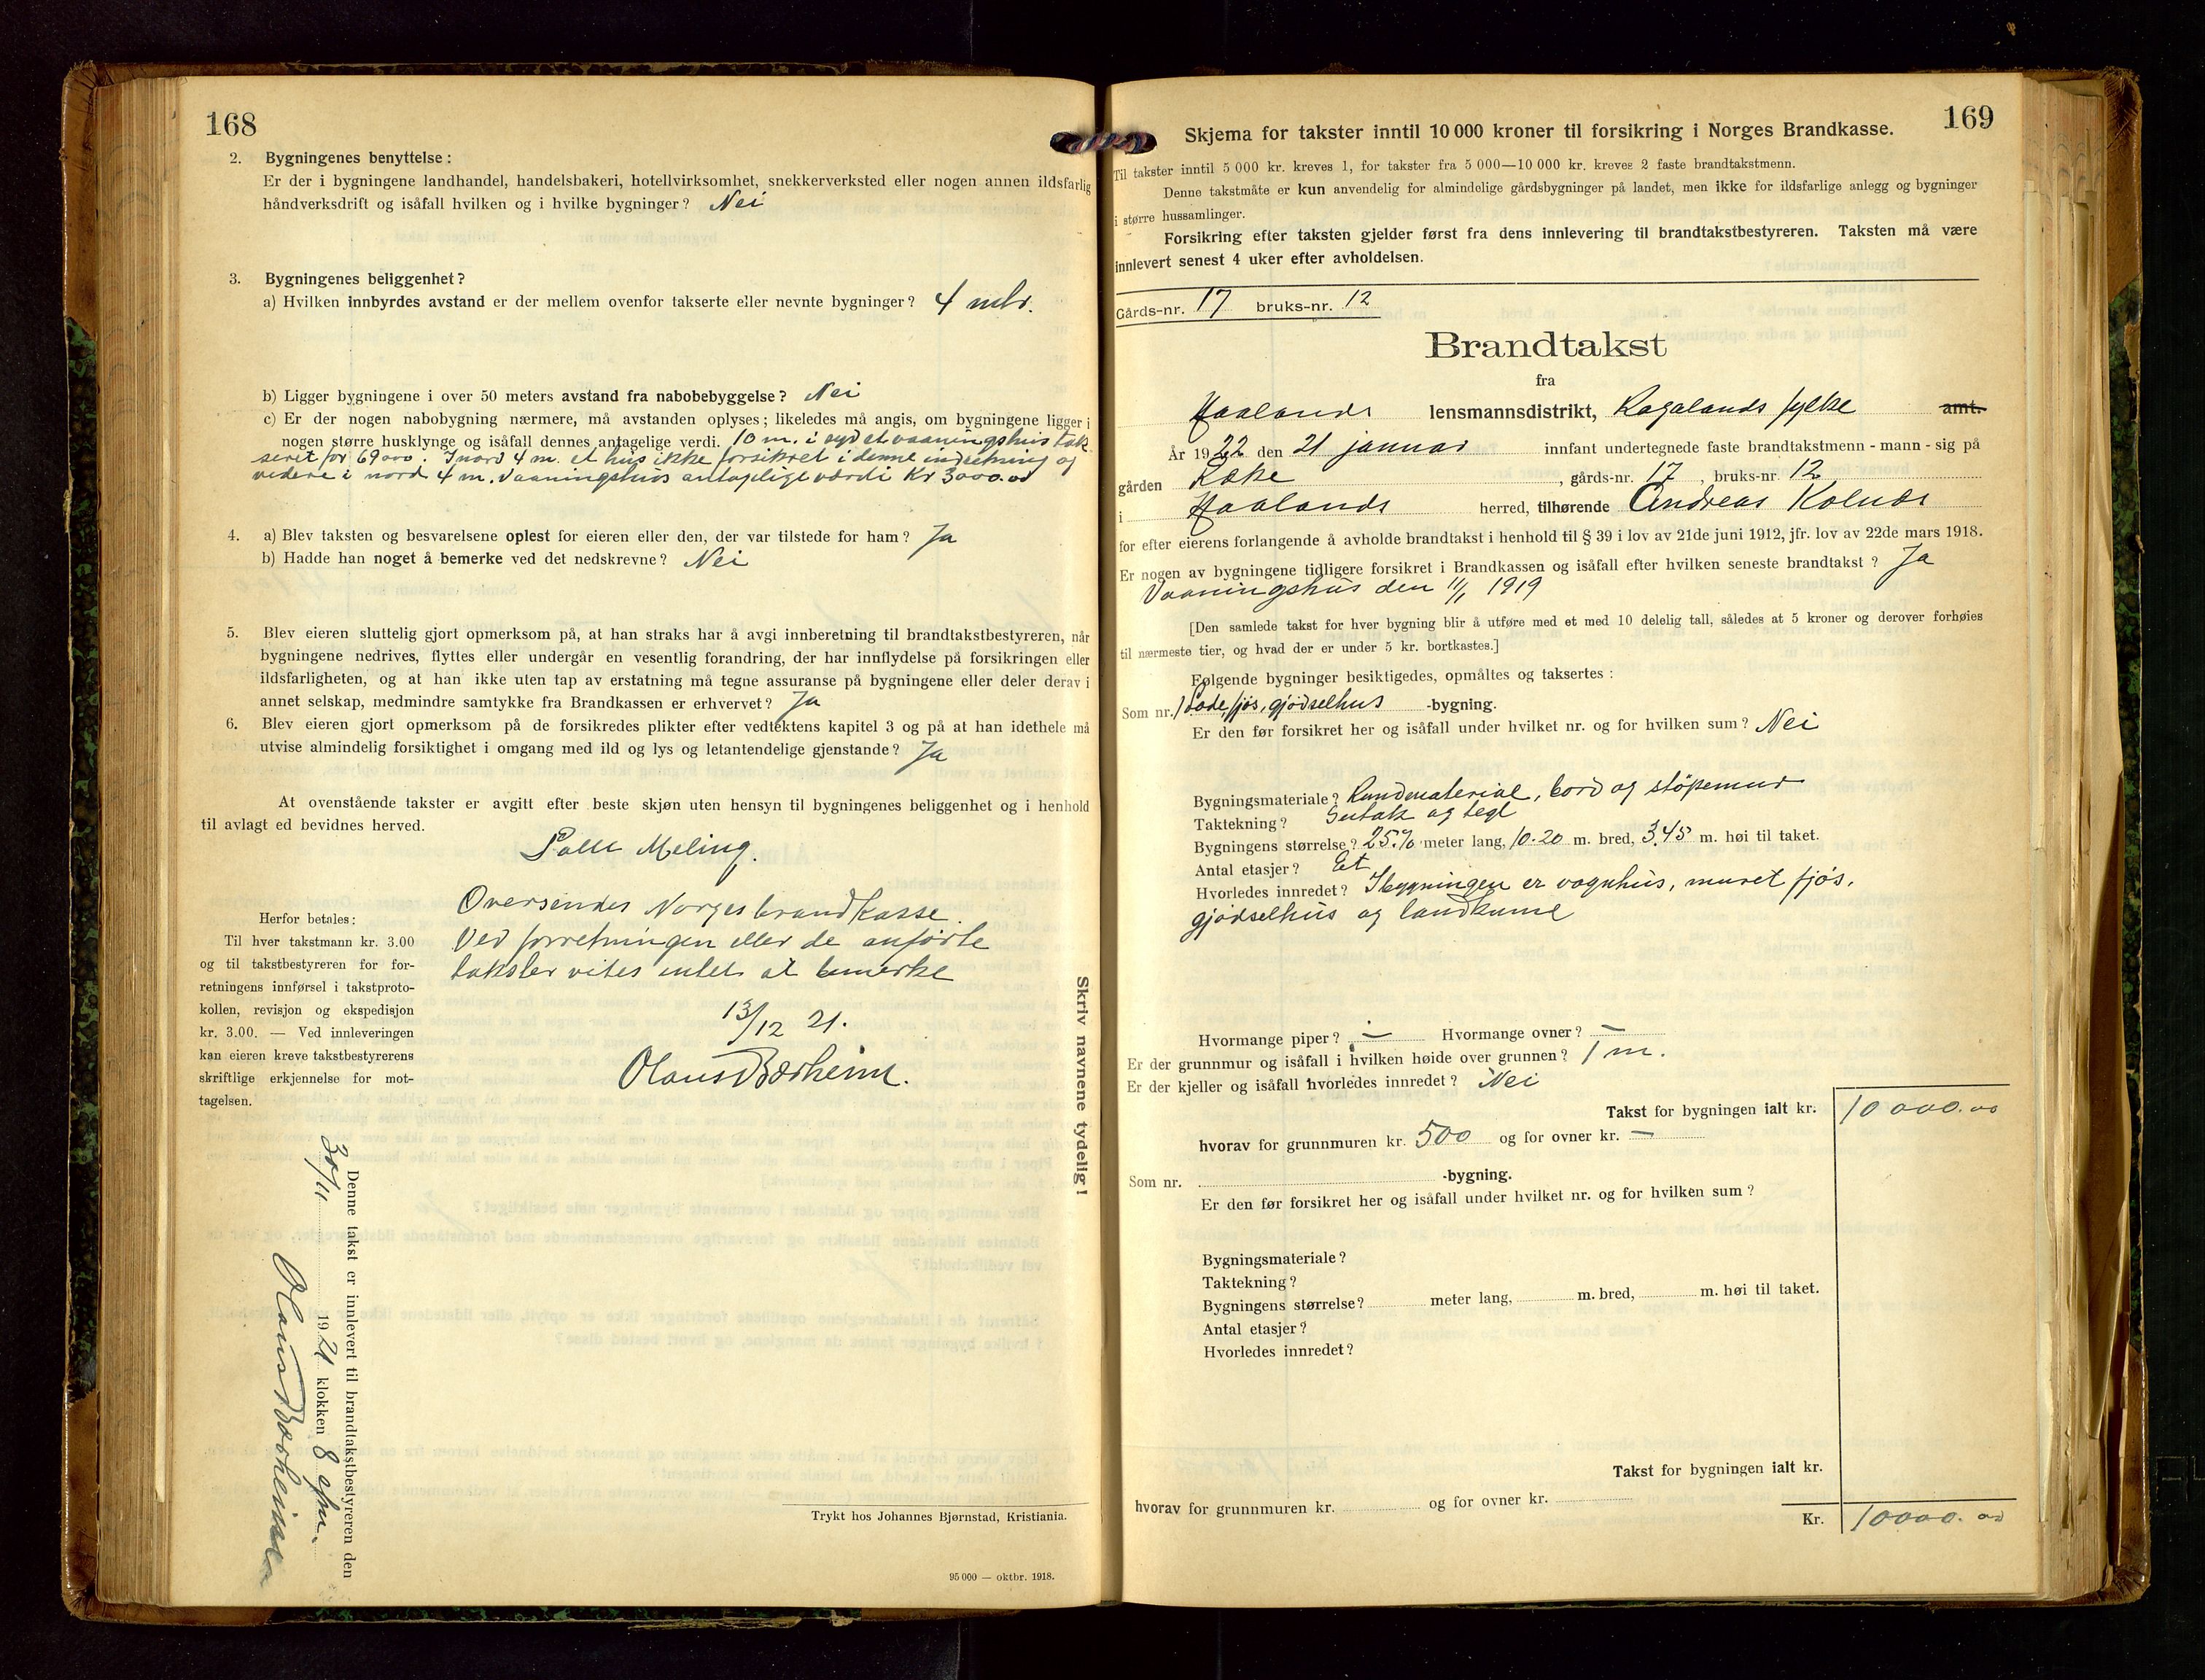 168
2. Bygningenes benyttelse:
Er der i bygningene landhandel, handelsbakeri, hotellvirksomhet, snekkerverksted eller nogen annen ildsfarlig
håndverksdrift og isåfall hvilken og i hvilke bygninger? Nei
3. Bygningenes beliggenhet?
a) Hvilken innbyrdes avstand er der mellem ovenfor takserte eller nevnte bygninger? 4 mtr.
b) Ligger bygningene i over 50 meters avstand fra nabobebyggelse? Nei
c) Er der nogen nabobygning nærmere, må avstanden oplyses; likeledes må angis, om bygningene ligger i
nogen større husklynge og isåfall dennes antagelige verdi. 10 m. i syd et vaaningshus tak
seret for 69000. I nord 4 m. et hus ikke forsikret i denne indretning og
videre i nord 4 m. Vaaningshus antaglige værdi Kr 3000.00
4. a) Blev taksten og besvarelsene oplest for eieren eller den, der var tilstede for ham? Ja
b) Hadde han noget å bemerke ved det nedskrevne? Nei
5. Blev eieren sluttelig gjort opmerksom på, at han straks har å avgi innberetning til brandtakstbestyreren, når
bygningene nedrives, flyttes eller undergår en vesentlig forandring, der har innflydelse på forsikringen eller
ildsfarligheten, og at han ikke uten tap av erstatning må tegne assuranse på bygningene eller deler derav i
annet selskap, medmindre samtykke fra Brandkassen er erhvervet? Ja
6. Blev eieren gjort opmerksom på de forsikredes plikter efter vedtektens kapitel 3 og på at han idethele må
utvise almindelig forsiktighet i omgang med ild og lys og letantendelige gjenstande? Ja
At ovenstående takster er avgitt efter beste skjøn uten hensyn til bygningenes beliggenhet og i henhold
til avlagt ed bevidnes herved.
Palle Meling.
Oversendes Norges brandkasse.
Ved forretningen eller de anførte
takster vites intet at bemerke
13/12 21.
Olaus Bærheim.
Herfor betales:
Til hver takstmann kr. 3.00
og til takstbestyreren for for-
retningens innførsel i takstproto-
kollen, revisjon og ekspedisjon
kr. 3.00. — Ved innleveringen
kan eieren kreve takstbestyrerens
skriftlige erkjennelse for mot-
tagelsen.
Skriv navnene tydelig!
Denne takst er innlevert til brandtakstbestyreren den
30/11 1921 klokken 8 efm.
Olaus Bærheim
Trykt hos Johannes Bjørnstad, Kristiania.
95 000 — oktbr. 1918.
169
Skjema for takster inntil 10 000 kroner til forsikring i Norges Brandkasse.
Til takster inntil 5 000 kr. kreves 1, for takster fra 5 000—10 000 kr. kreves 2 faste brandtakstmenn.
Denne takstmåte er kun anvendelig for almindelige gårdsbygninger på landet, men ikke for ildsfarlige anlegg og bygninger
i større hussamlinger.
Forsikring efter taksten gjelder først fra dens innlevering til brandtakstbestyreren. Taksten må være
innlevert senest 4 uker efter avholdelsen.
Gårds-nr. 17 bruks-nr. 12
Brandtakst
fra
Haalands lensmannsdistrikt, Rogalands fylke amt.
År 1922 den 21 januar innfant undertegnede faste brandtakstmenn - mann - sig på
gården Ræke, gårds-nr. 17, bruks-nr. 12
i Haalands herred, tilhørende Andreas Kolnes
for efter eierens forlangende å avholde brandtakst i henhold til § 39 i lov av 21de juni 1912, jfr. lov av 22de mars 1918.
Er nogen av bygningene tidligere forsikret i Brandkassen og isåfall efter hvilken seneste brandtakst? Ja
Vaaningshus den 11/1 1919
[Den samlede takst for hver bygning blir å utføre med et med 10 delelig tall, således at 5 kroner og derover forhøies
til nærmeste tier, og hvad der er under 5 kr. bortkastes.]
Følgende bygninger besiktigedes, opmåltes og taksertes:
Som nr. 1 Løde, fjøs, gjødselhus -bygning.
Er den før forsikret her og isåfall under hvilket nr. og for hvilken sum? Nei
Bygningsmateriale? Rundmaterial, bord og støpemur
Taktekning? Sutak og tegl
Bygningens størrelse? 25.70 meter lang, 10.20 m. bred, 3.45 m. høi til taket.
Antal etasjer? Et
Hvorledes innredet? I bygningen er vognhus, muret fjøs,
gjødselhus og landkume
Hvormange piper? — Hvormange ovner? —
Er der grunnmur og isåfall i hvilken høide over grunnen? 1 m.
Er der kjeller og isåfall hvorledes innredet? Nei
Takst for bygningen ialt kr. 10 000.00
hvorav for grunnmuren kr. 500 og for ovner kr. —
Som nr. -bygning.
Er den før forsikret her og isåfall under hvilket nr. og for hvilken sum?
Bygningsmateriale?
Taktekning?
Bygningens størrelse? meter lang, m. bred, m. høi til taket.
Antal etasjer?
Hvorledes innredet?
Takst for bygningen ialt kr.
hvorav for grunnmuren kr. og for ovner kr.
Kr. 10000.00